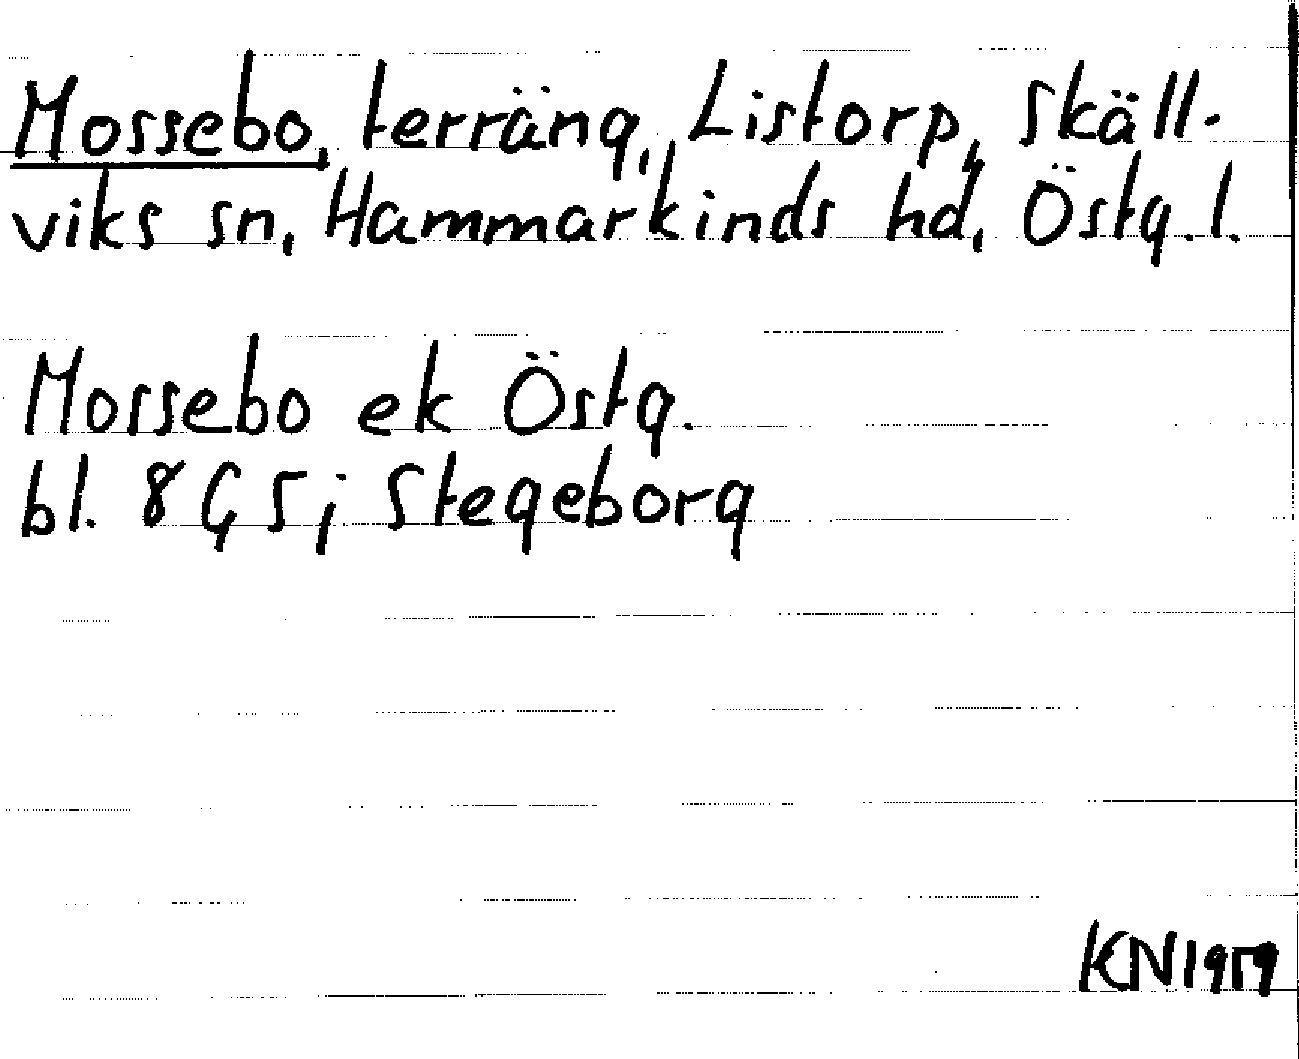 Mossebo, terräng, Listorp, Skäll-
viks sn, Hammarkinds hd, Östg. l.
Mossebo ek Östg.
bl. 8G5j Stegeborg
KN